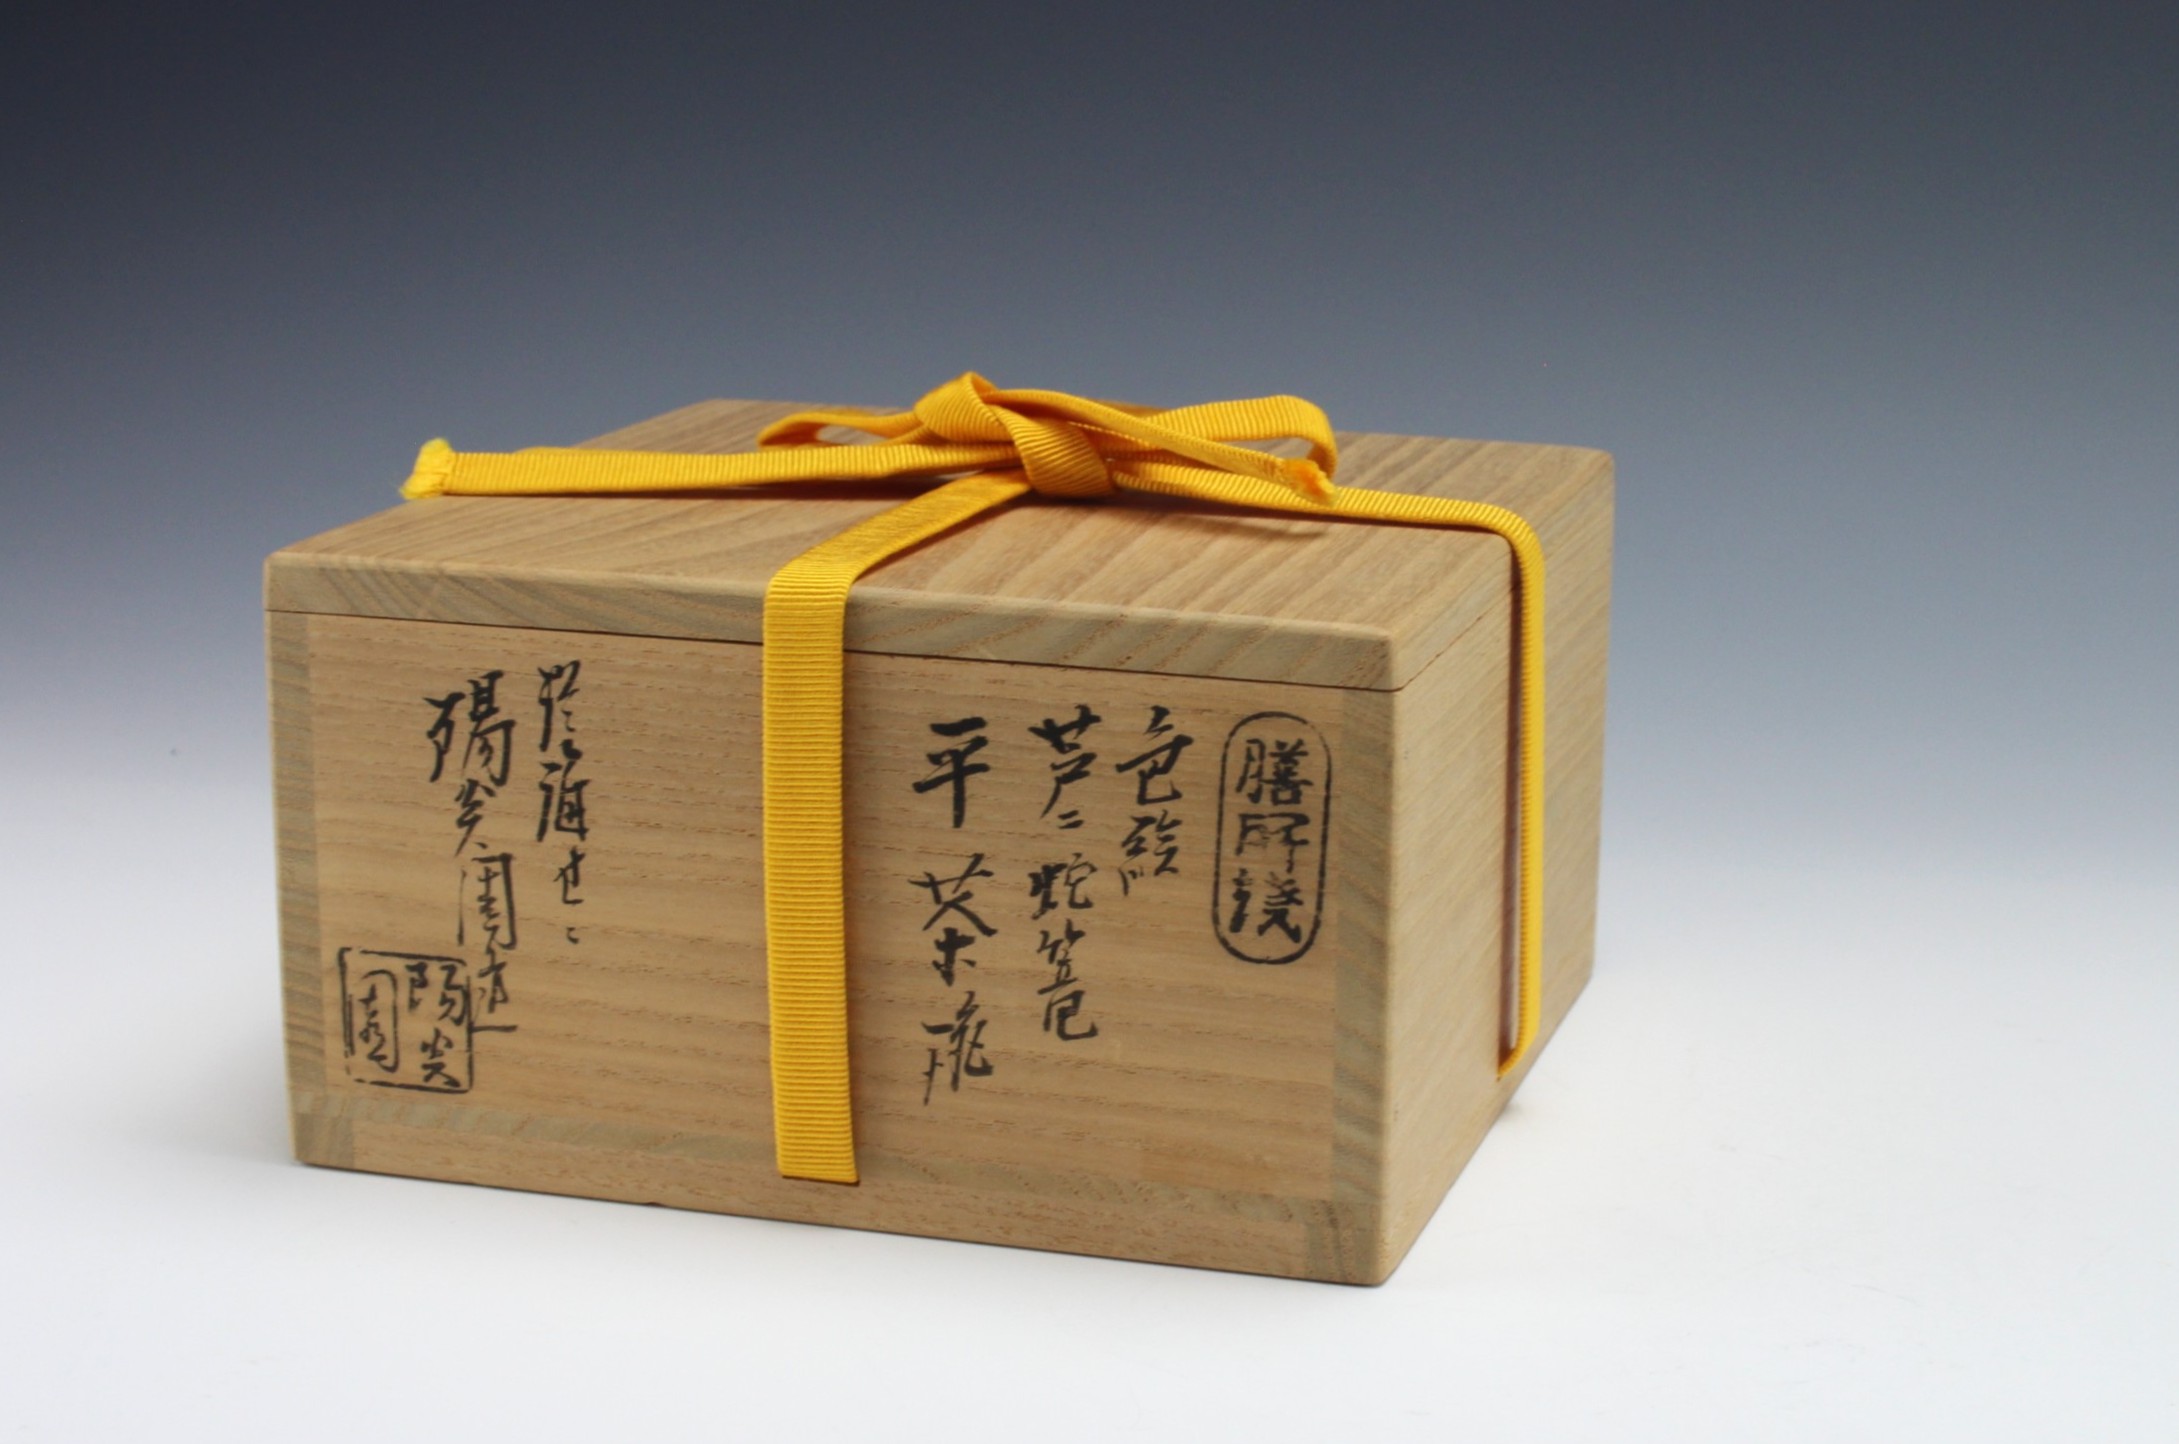 膳所焼
色絵
芦ニ蛇篭
平茶碗
於
陽炎園造
陽炎
園